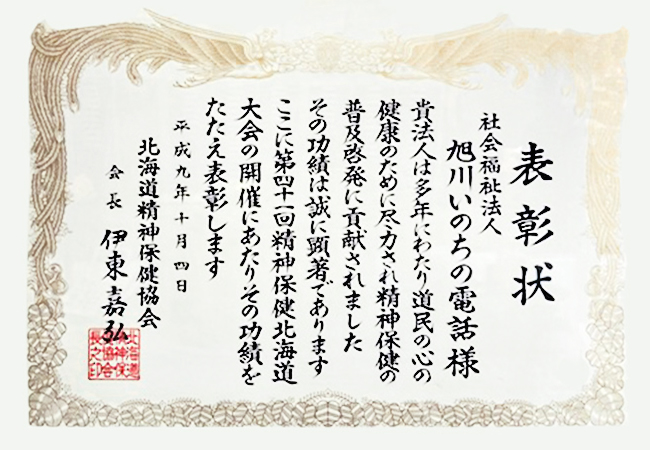 表彰状
社会福祉法人
旭川いのちの電話様
貴法人は多年にわたり道民の心の
健康のために尽力され精神保健の
普及啓発に貢献されました
その功績は誠に顕著であります
ここに第四十一回精神保健北海道
大会の開催にあたりその功績を
たたえ表彰します
平成九年十月四日
北海道精神保健協会
会長 伊東嘉弘
北海道
精神保
健協会
長之印